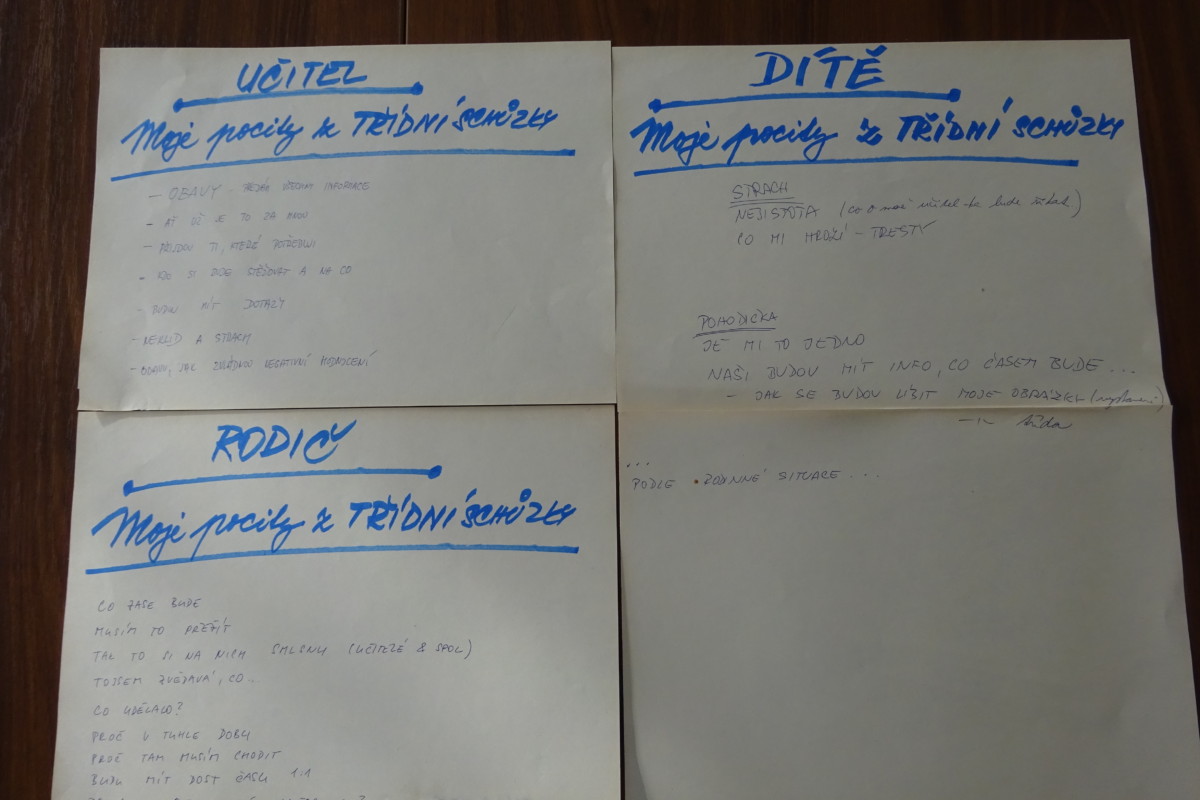 UČITEL
Moje pocity z TŘÍDNÍ SCHŮZKY
- OBAVY - PŘEDÁM VŠECHNY INFORMACE
- AŤ UŽ JE TO ZA MNOU
- PŘIJDOU TI, KTERÉ POTŘEBUJI
- KDO SI BUDE STĚŽOVAT A NA CO
- BUDOU MÍT DOTAZY
- NEKLID A STRACH
- OBAVY, JAK ZVLÁDNOU NEGATIVNÍ HODNOCENÍ
DÍTĚ
Moje pocity z TŘÍDNÍ SCHŮZKY
STRACH
NEJISTOTA (co o mně učitel-ka bude říkat)
CO MI HROZÍ - TRESTY
POHODIČKA
JE MI TO JEDNO
NAŠI BUDOU MÍT INFO, CO ČASEM BUDE ...
- JAK SE BUDOU LÍBIT MOJE OBRÁZKY (vystavení)
-"- třída
...
PODLE RODINNÉ SITUACE ...
RODIČ
Moje pocity z TŘÍDNÍ SCHŮZKY
CO ZASE BUDE
MUSÍM TO PŘEŽÍT
TAK TO SI NA NICH SMLSNU (UČITELÉ & SPOL)
TO JSEM ZVĚDAVÁ, CO..
CO UDĚLALO?
PROČ V TUHLE DOBU
PROČ TAM MUSÍM CHODIT
BUDU MÍT DOST ČASU 1:1